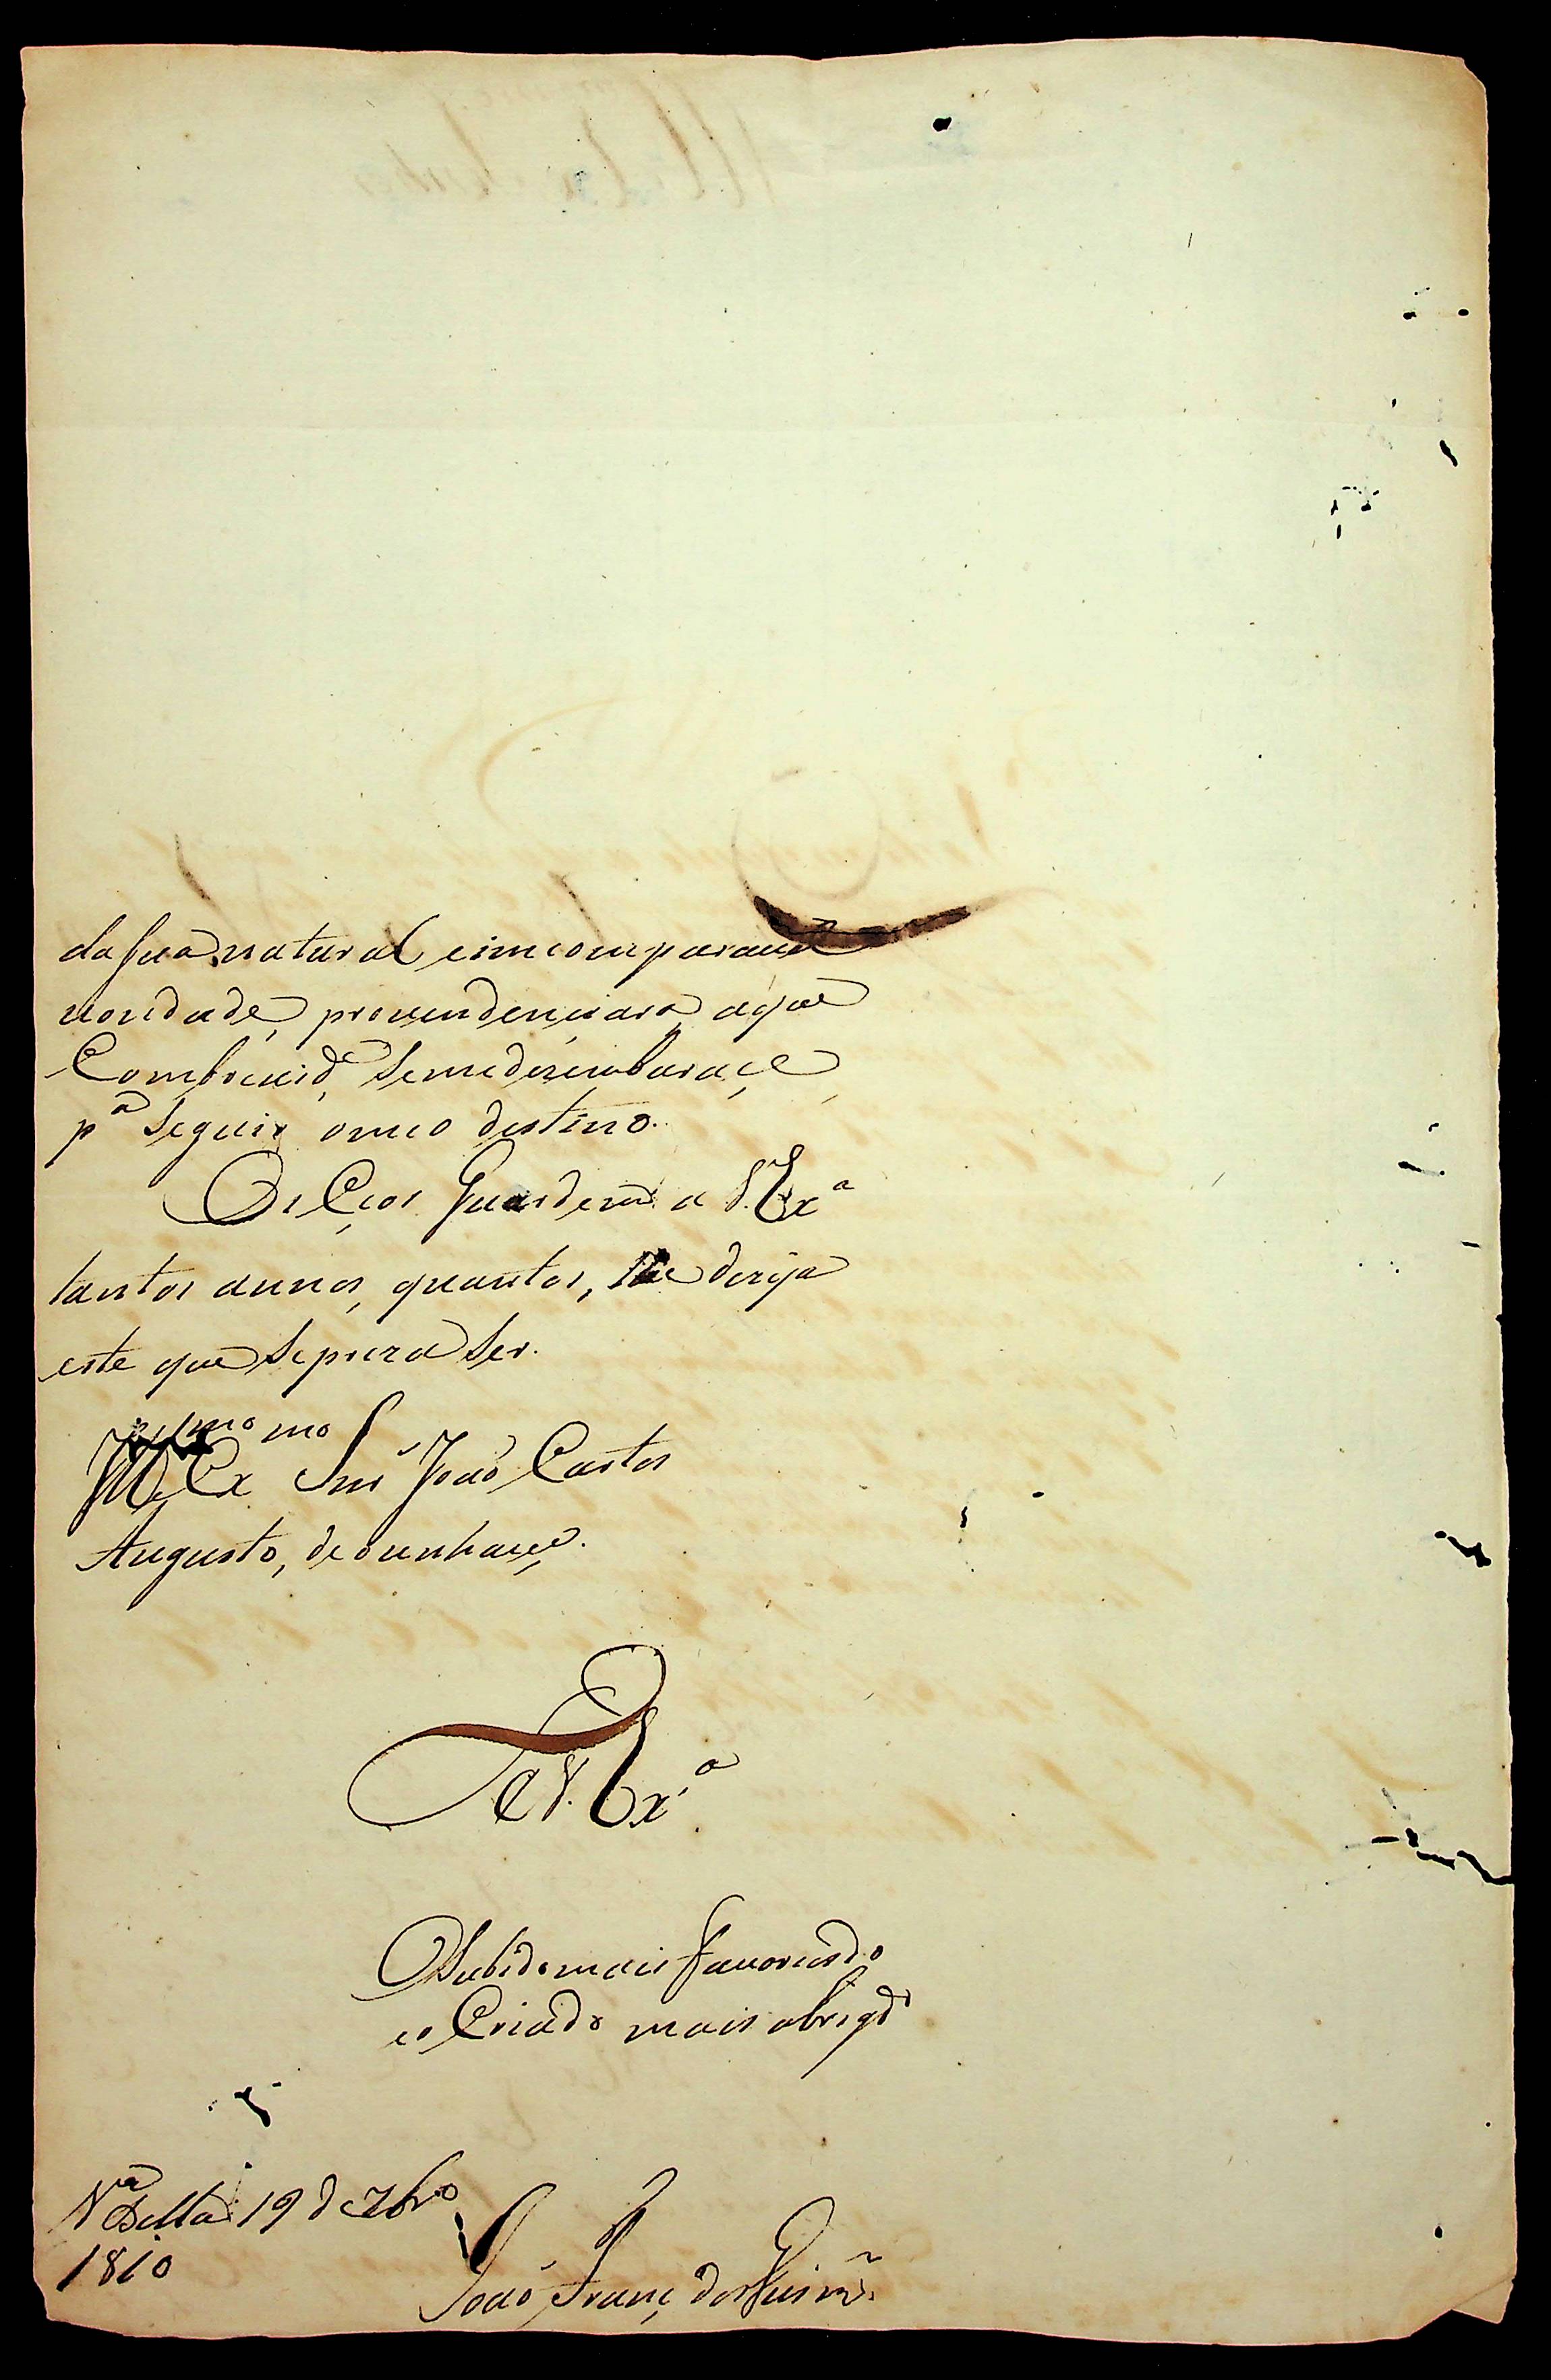 da sua natural e imcomparavel
vondade, provendenciara, aque
Combrevid.e Semedezembarace
p.a Seguir omeo destino.
Os Ceos Guardem a V. Ex.a
tantos annos, quantos, lhe dezija
este que Sepreza Ser.
Ill.mo Ex.mo Snr João Carlos
Augusto, de
De V. Ex.a
O Subido mais favorecido
eo Criado mais obrigd.o
V.a Bella 19 de 7br.o
1810
João Franc.